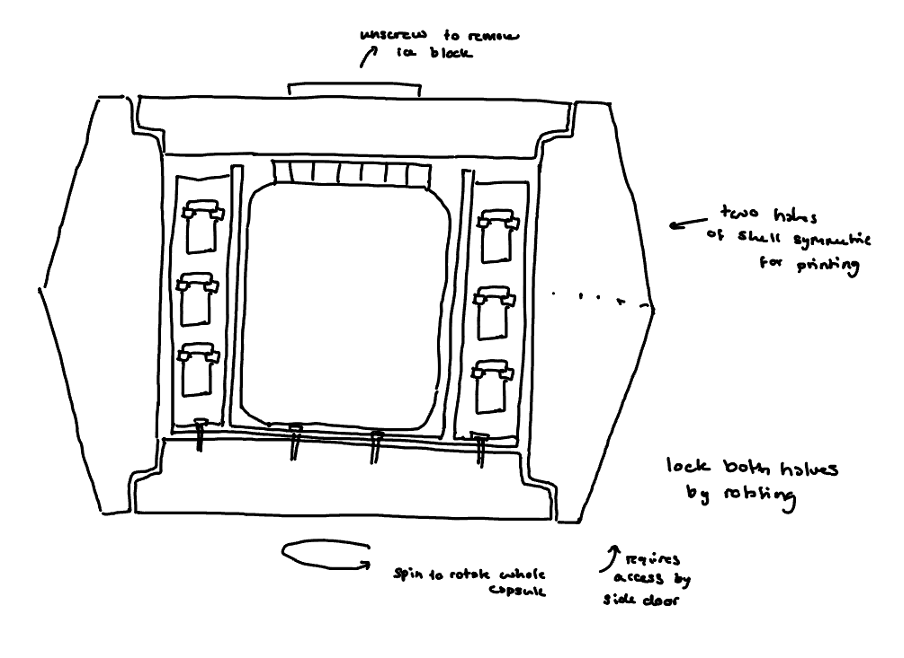 unscrew to remove
ice block
two halves
of shell symmetric
for printing
lock both halves
by rotating
spin to rotate whole
capsule
requires
access by
side door